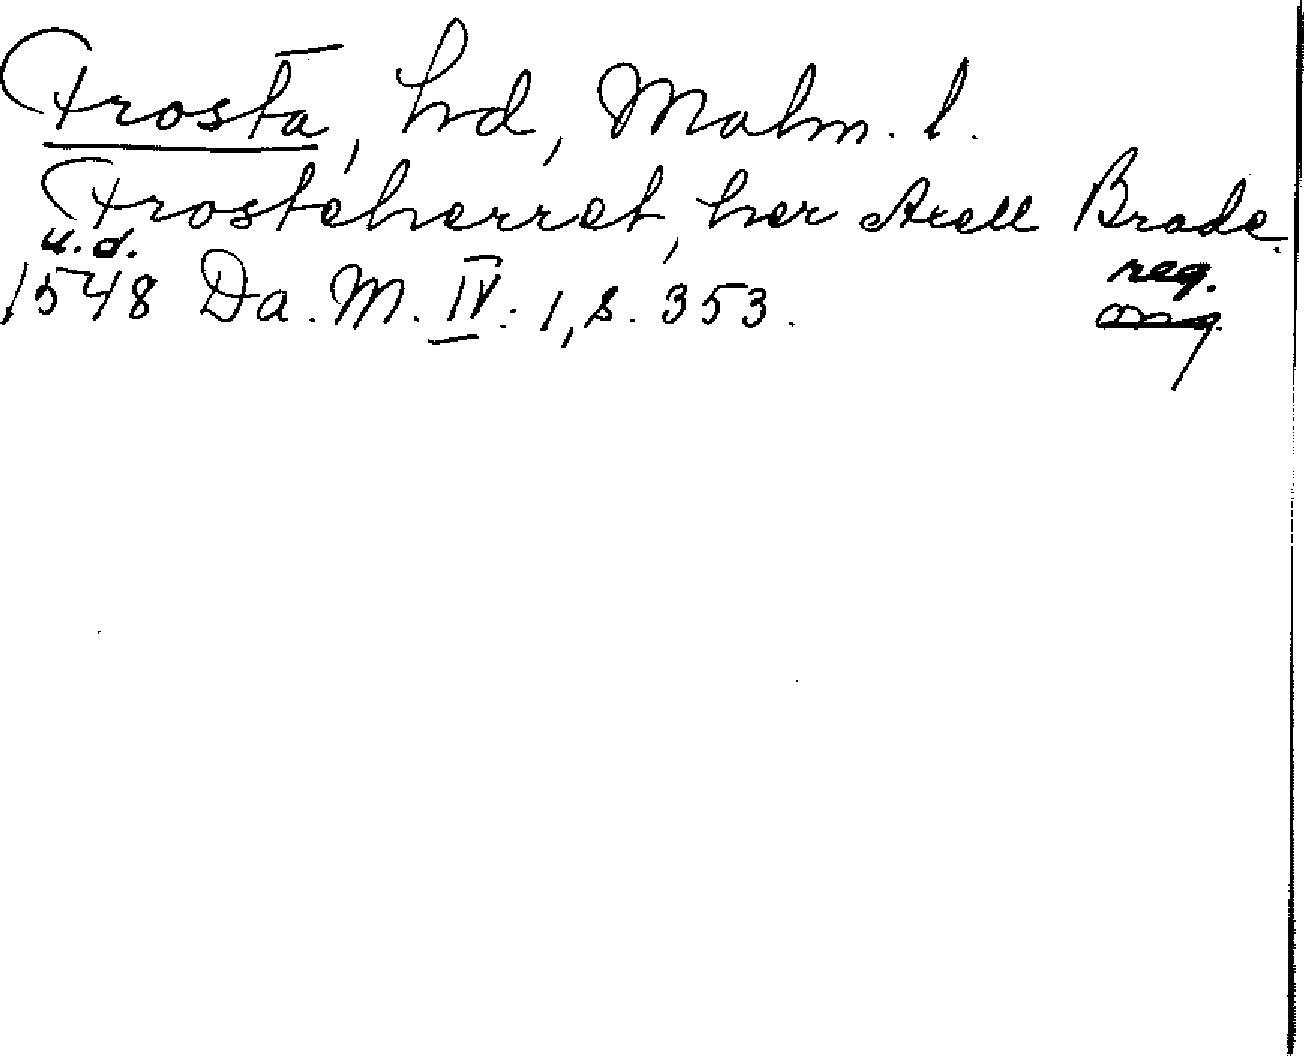 Frosta, hd, Malm. l.
Frosteherret, her Axell Brade.
u.d. reg.
1548 Da. M. IV: 1, s. 353.